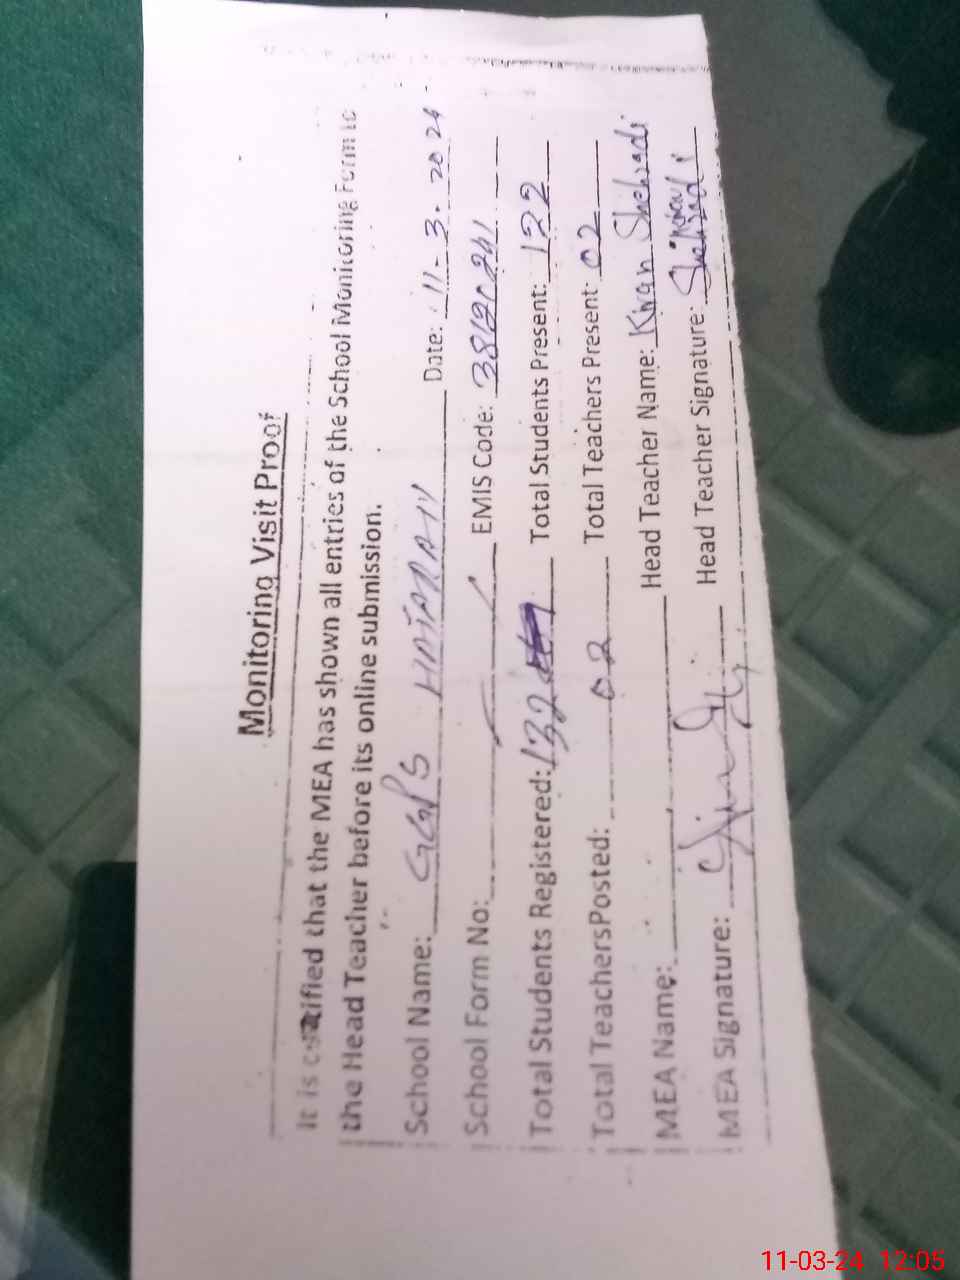 Monitoring Visit Proof
It is certified that the MEA has shown all entries of the School Monitoring Form to
the Head Teacher before its online submission.
School Name: GGPS Date: 11-3-2024
School Form No: EMIS Code:
Total Students Registered: 132 Total Students Present: 122
Total TeachersPosted: 02 Total Teachers Present: 02
MEA Name: Head Teacher Name: Kiran Shehzadi
MEA Signature: Head Teacher Signature: Kiran Shehzadi
11-03-24 12:05